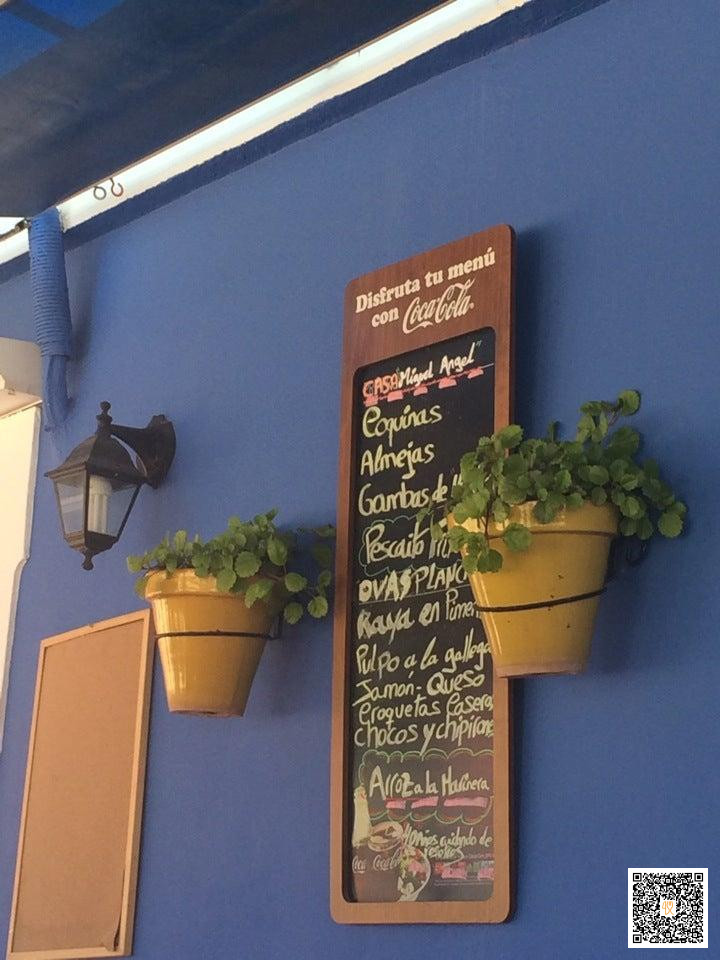 Disfruta tu menú
con Coca-Cola
CASA "Miguel Angel"
Coquinas
Almejas
Gambas de
Pescaito
OVAS PLANC
Raya en Pimen
Pulpo a la gallega
Jamón - Queso
Croquetas Caseras
chocos y chipirone
Arroz a la Marinera
40 años cuidando de